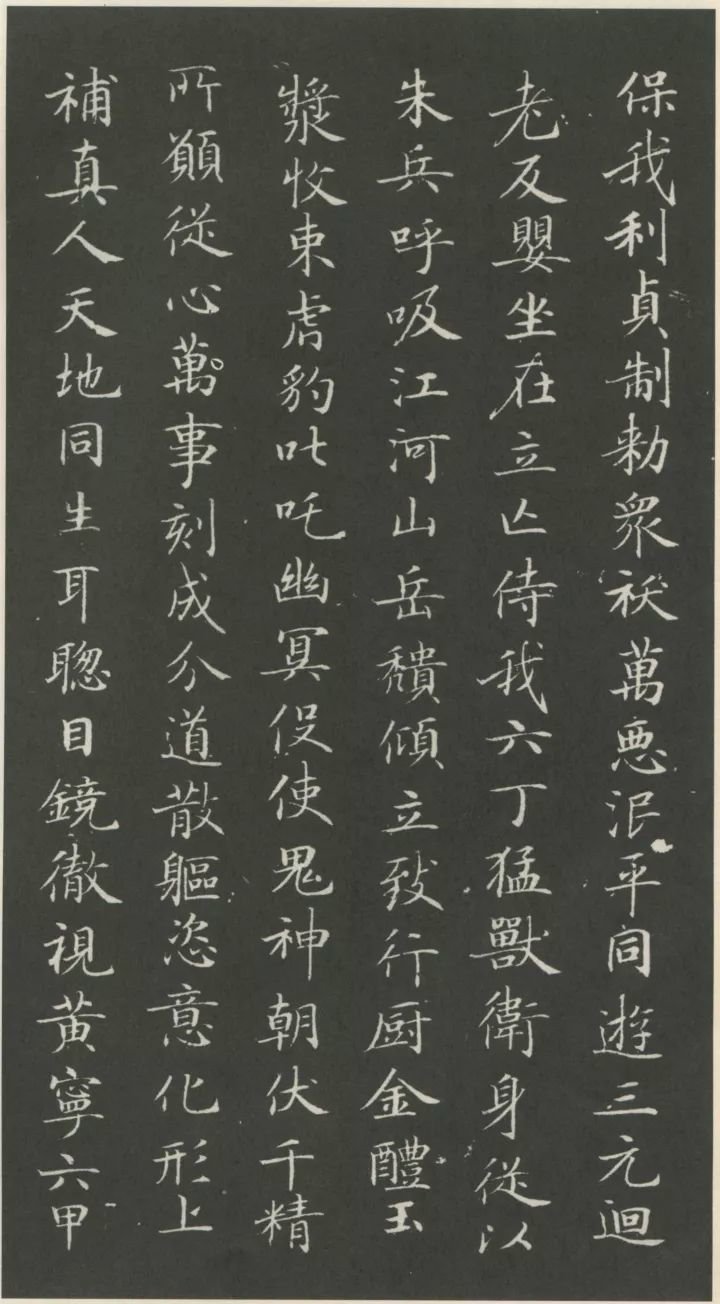 保我利貞制勑眾祅萬惡泯平同遊三元迴
老反嬰坐在立亾侍我六丁猛獸衛身從以
朱兵呼吸江河山岳頹傾立致行厨金醴玉
漿收束虎豹叱吒幽冥役使鬼神朝伏千精
所願從心萬事剋成分道散軀恣意化形上
補真人天地同生耳聰目鏡徹視黃寧六甲